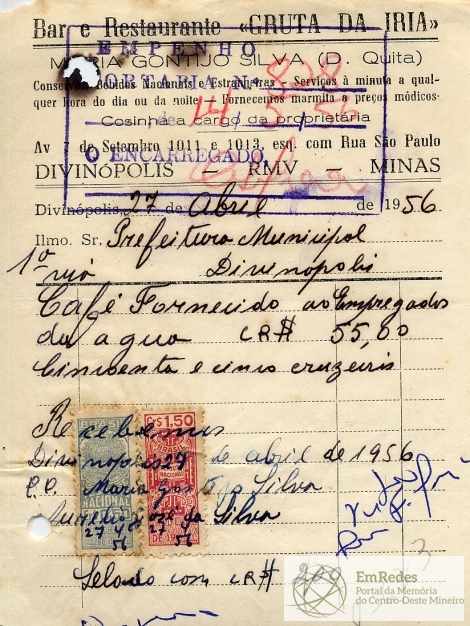 Bar e Restaurante «GRUTA DA IRIA»
EMPENHO
MARIA GONTIJO SILVA (D. Quita)
PORTARIA Nº 828
Conservas, Bebidas Nacionais e Estrangeiras - Serviços à minuta a qual-
quer hora do dia ou da noite - Fornecemos marmita a preços módicos.
de 14/5/56
Cosinha a cargo da proprietária
Av 7 de Setembro 1011 e 1013, esq. com Rua São Paulo
O ENCARREGADO
DIVINÓPOLIS — RMV — MINAS
Divinópolis, 27 de Abril de 1956
Ilmo. Sr. Prefeitura Municipal
1ª via Divinopolis
Café Fornecido ao Empregados
da agua CR$ 55,00
Cincoenta e cinco cruzeiris
Recebemus
Divinopolis 27 de abril de 1956
P.P. Maria Gontijo Silva
Silva
CR$ 1,50
BRASIL
NACIONAL
27 4 56
27 56
Selado com CR$
EmRedes
Portal da Memória
do Centro-Oeste Mineiro